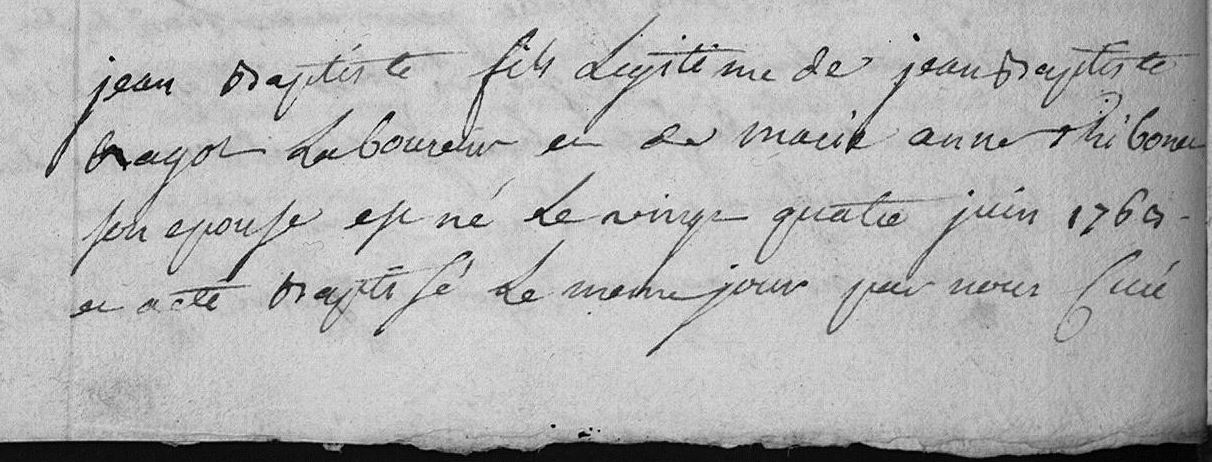 jean Baptiste fils Legitime de jean Baptiste
Ragot Laboureur et de marie anne Thibonet
son epouse est né Le vingt quatre juin 1760
et a eté Baptisé Le meme jour par nous Curé